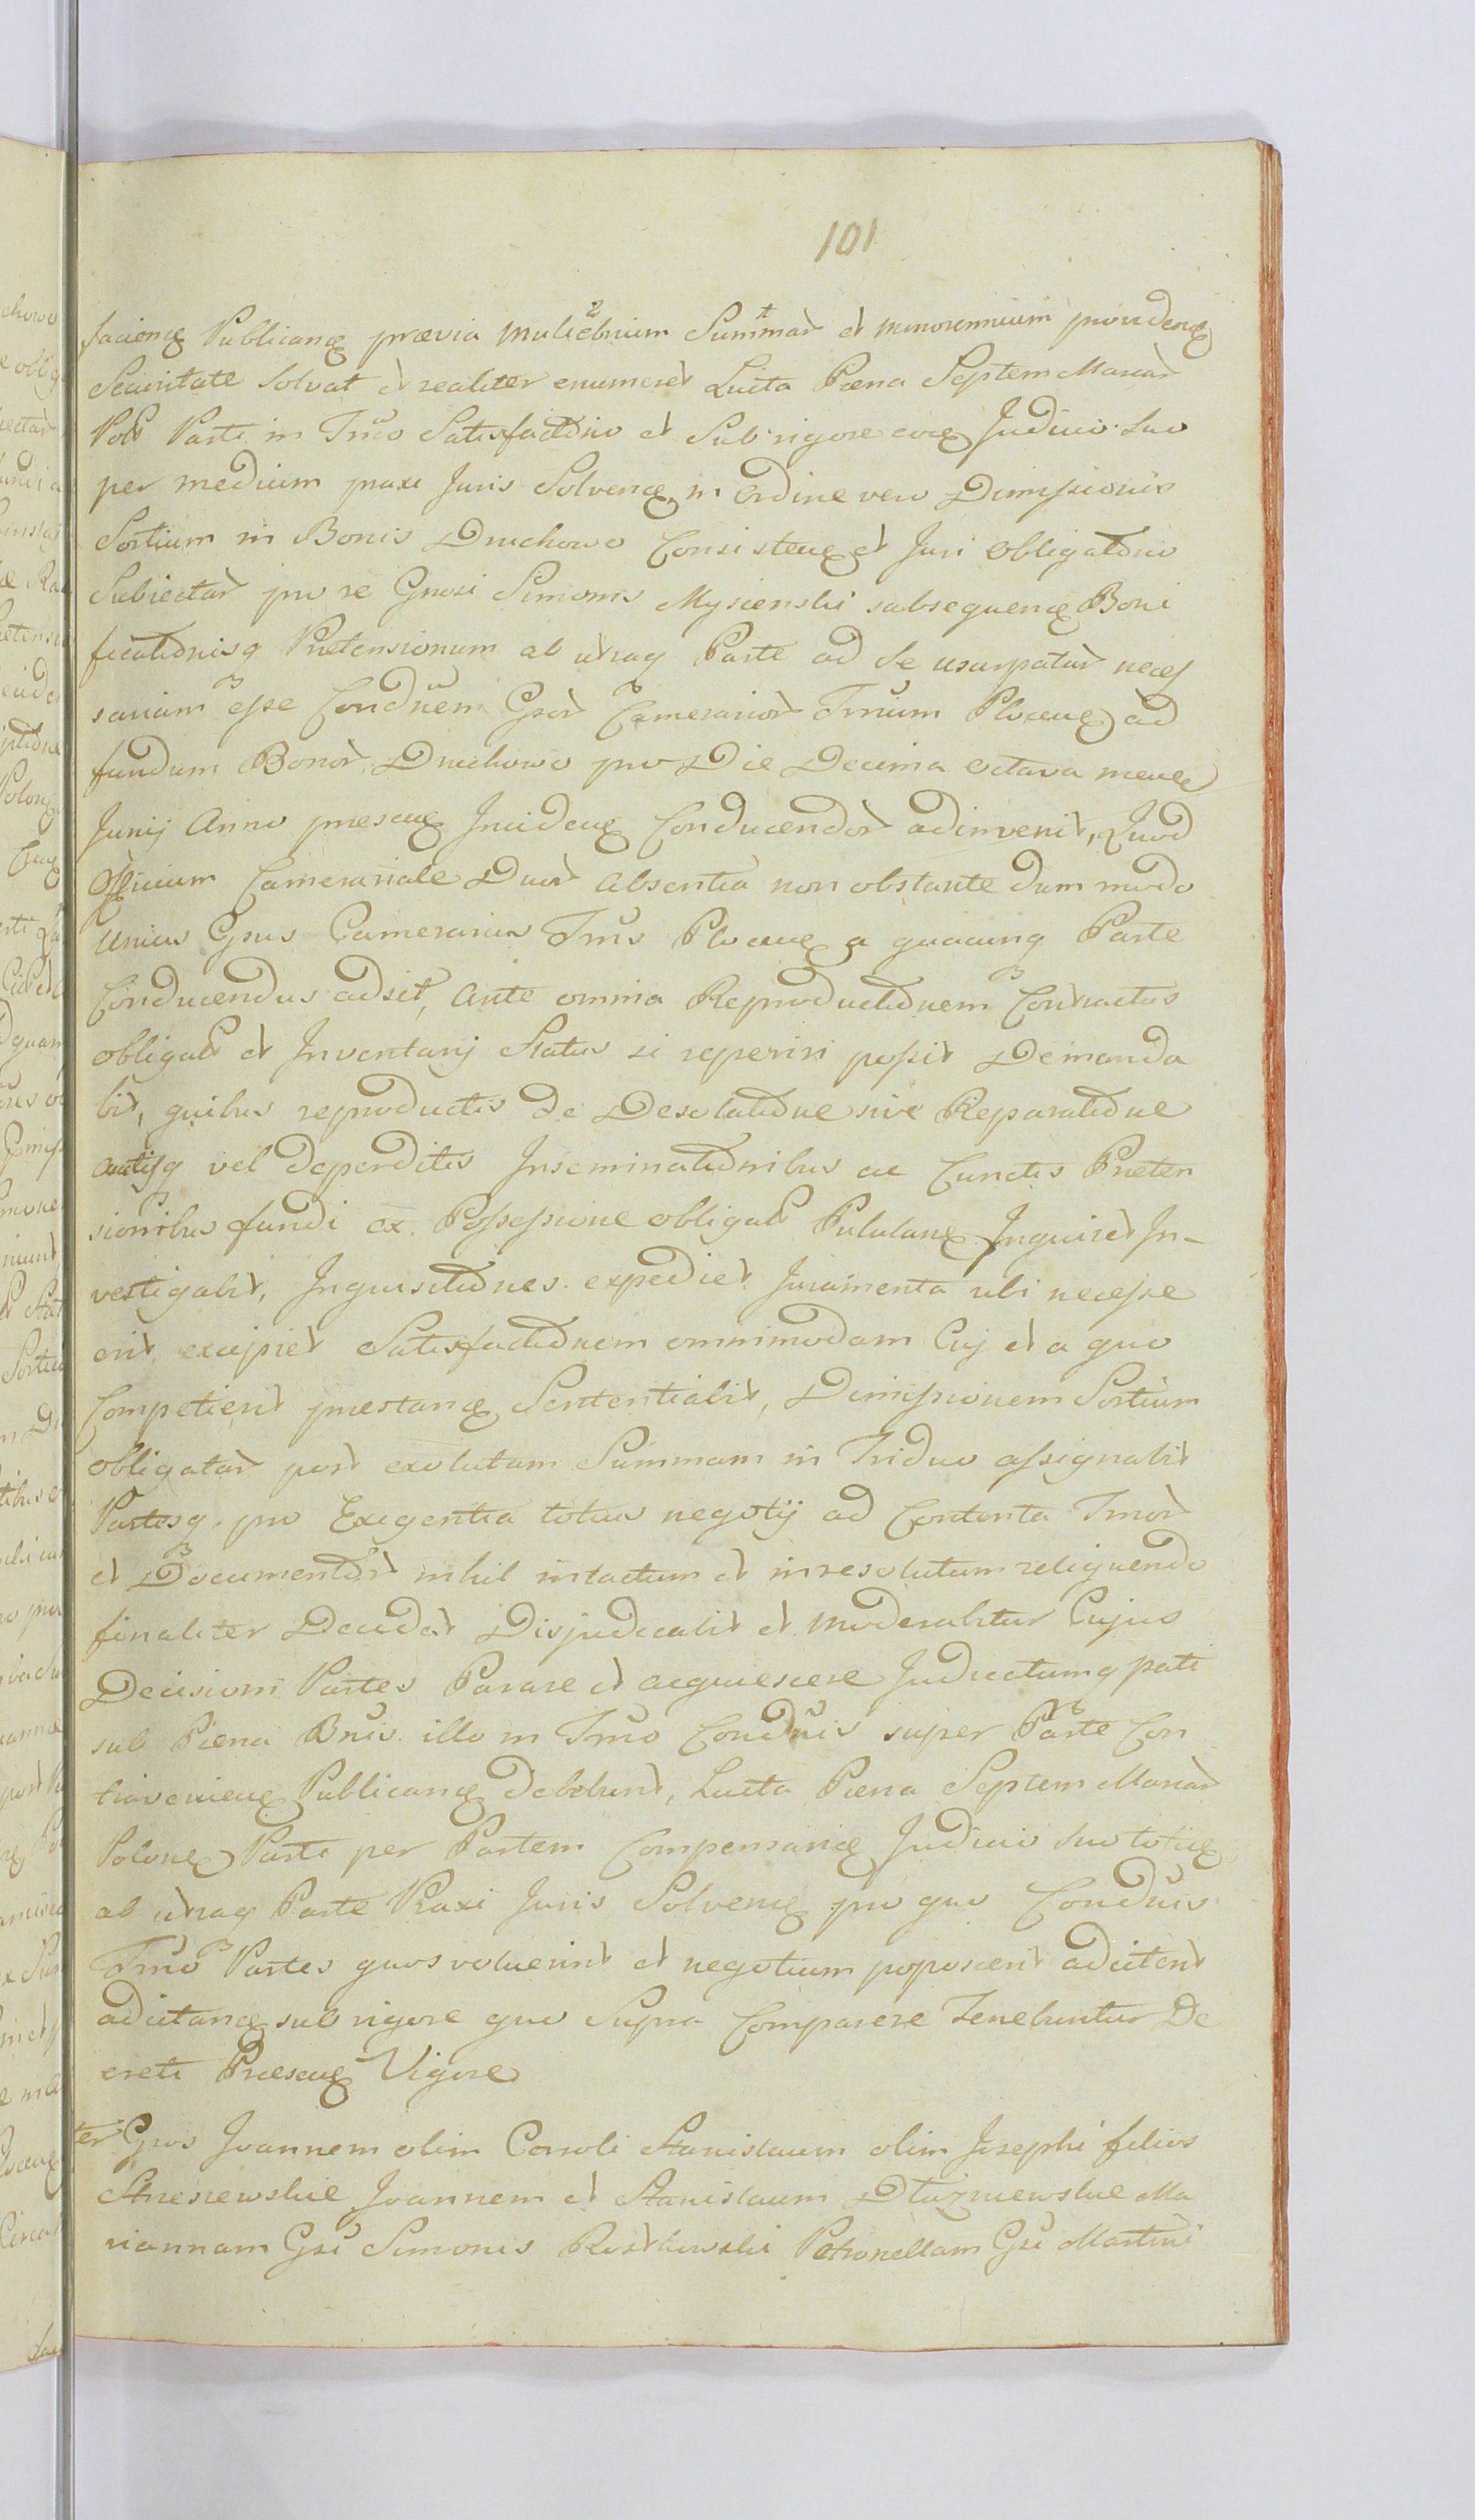 101
facienꝗ Publicanꝗ prævia mulie͠brium Summar̃ et minorennium providenꝗ
Securitate Solvat et realiter enumeret Lucta Pæna Septem Marcar̃
Pol̃ Parti in Tm̃o Satisfact͠nio et Sub rigore ejusꝗ Judicio suo
per medium praxi Juris Solvenꝗ, in Ordine vero Dimissionis
Sortium in Bonis Duchowo Consistenꝗ et Juri Obligat͠rio
Subiectar̃ pro re Gnosi Simonis Mysienski subsequenꝗ Boni
ficat͠nisq Prætensionum ab utraq Parte ad Se usurpatar̃ neces
sariam esse Condũem Gsor̃ Camerarior̃ Trr̃um Plocenꝗ ad
fundum Bonor̃ Duchowo pro Die Decima Octava mensꝗ
Junij Anno præsenꝗ Incidenꝗ Conducendor̃ adinvenit, Quod
Officium Camerariale Duor̃ Absentia non obstante dum modo
Unius Gsus Camerarius Trr̃is Plocenꝗ a quacunq Parte
Conducendus adsit, Ante omnia Reproduct͠nem Contractus
obligat̃ et Inventarij Status si reperiri possit Demanda
bit, quibus reproductis de Desolat͠ne sive Reparat͠ne
auctisq vel deperditis Inseminat͠nibus ac Cunctis Præten
sionibus fundi ex Possessione obligat̃ Pululanꝗ Inquiret In-
vestigabit, Inquisit͠nes expediet Juramenta ubi necesse
erit excipiet Satisfact͠nem omnimodam Cuj et a quo
Competierit præstanꝗ Sententiabit, Dimissionem Sortium
obligatar̃ post exolutam Summam in Triduo assignabit
Partesq pro Exigentia totius negotij ad Contenta Tm̃or̃
et Documentor̃ nihil intactum et inresolutum reliquendo
finaliter Decidet Disjudicabit et moderabitur Cujus
Decisioni Partes Parare et acquiescere Judicatumq pati
sub Pæna Bn̄is illo in Tm̃o Condũis super Parte Con
travenienꝗ Publicanꝗ debebunt, Lucta Pæna Septem Marcar̃
Polonꝗ Parti per Partem Compensanꝗ Judicio suo totiesꝗ
ab utraq Parte Praxi Juris Solvenꝗ pro quo Condũis
Tm̃o Partes quos voluerint et negotium poposcerit adcitent
adcitanꝗ sub rigore quo Supra Comparere Tenebuntur De
creti Præsenꝗ Vigore
ter Gsos Joannem olim Caroli Stanislaum olim Josephi filios
Joannem et Stanislaum Dłuzniewskie Ma
riannam Gsi Simonis Rostkowski Petronellam Gsi Martini